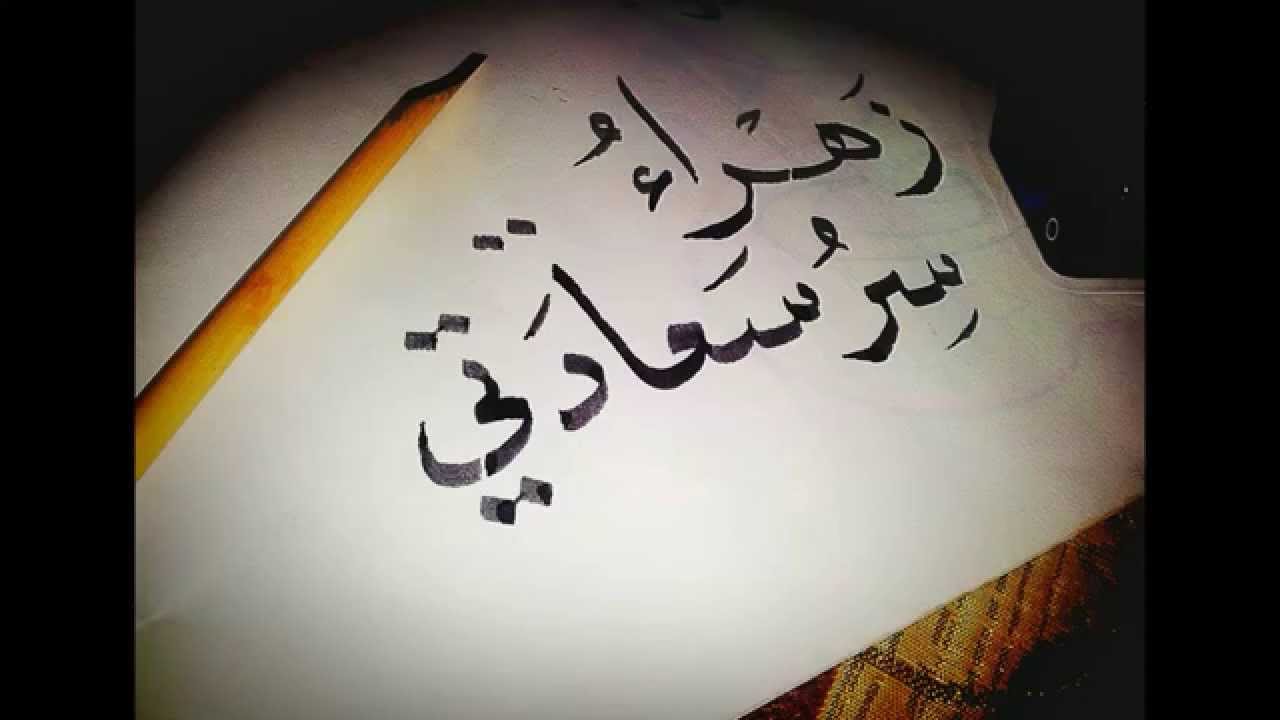 زَهْراءُ
سِرُ سَعادَتي